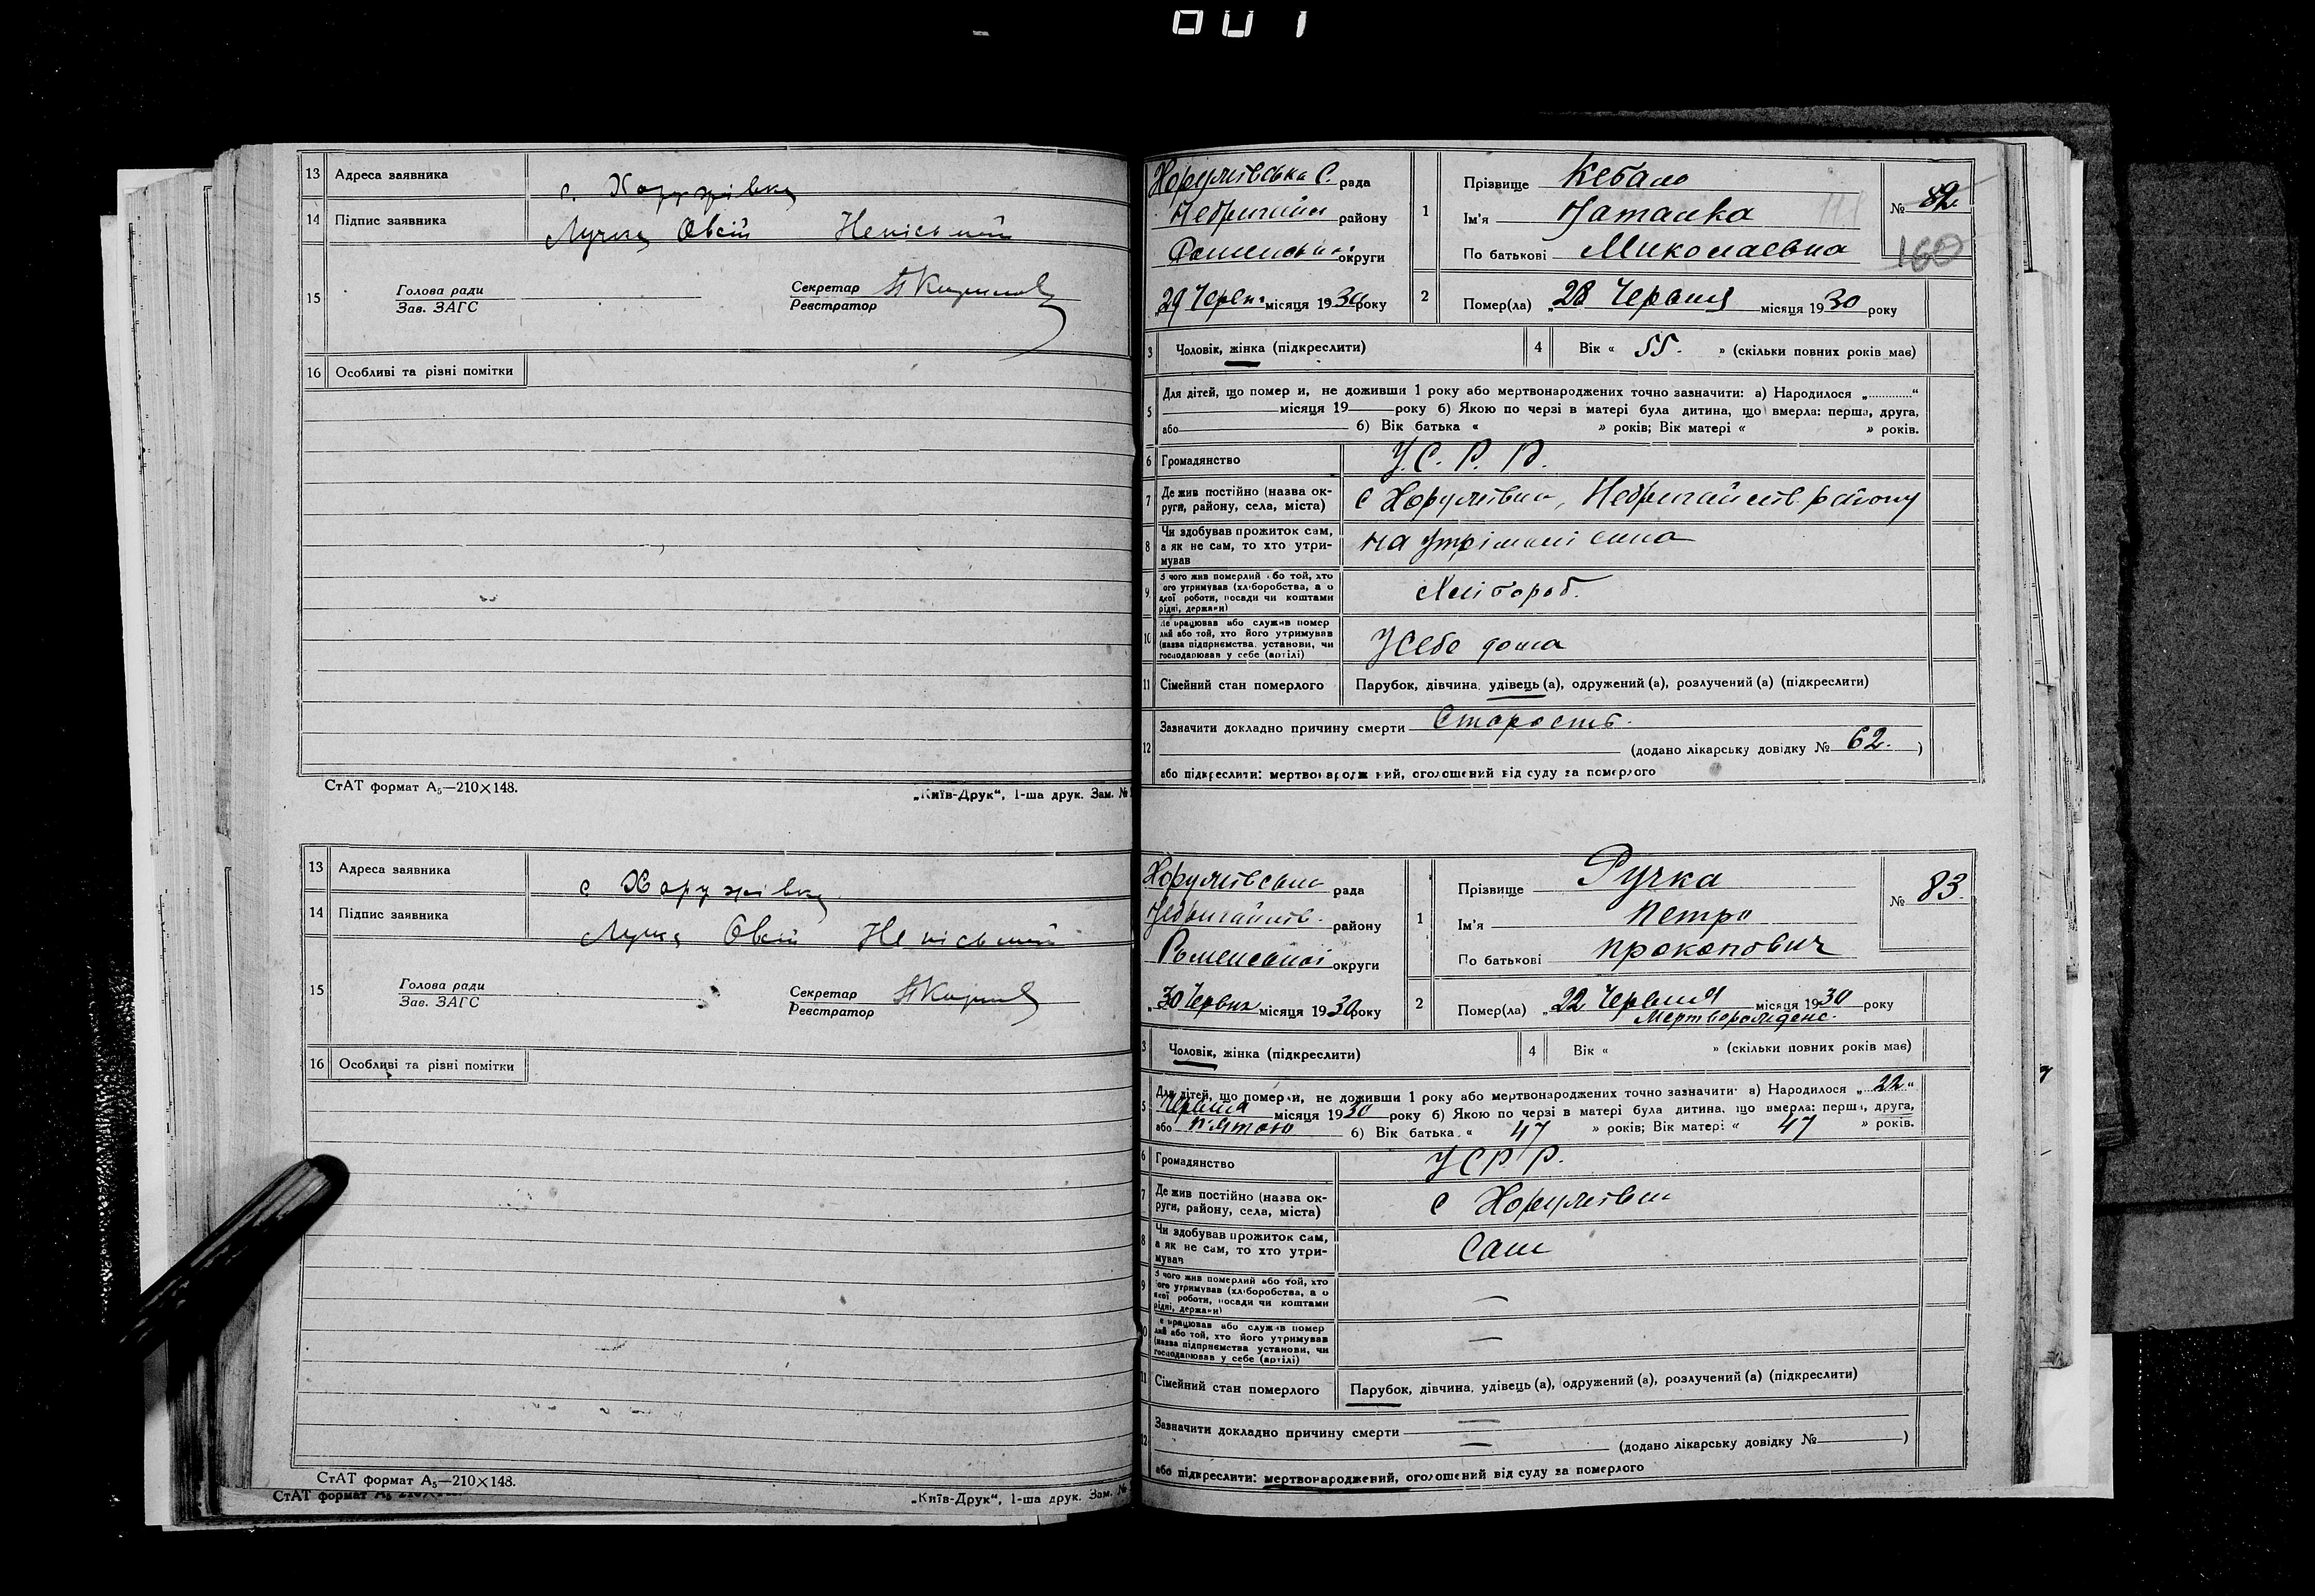 001
13 Адреса заявника с. Хоружівка
14 Підпис заявника Лучка Овсій Неписьмен
15 Голова ради
Зав. ЗАГС
Секретар
Реєстратор
16 Особливі та різні помітки
СтАТ формат А₅—210×148.
„Київ-Друк“, 1-ша друк. Зам. №
13 Адреса заявника с Хоружівка
14 Підпис заявника Овсій
15 Голова ради
Зав. ЗАГС
Секретар
Реєстратор
16 Особливі та різні помітки
СтАТ формат А₅—210×148.
СтАТ формат А₅
„Київ-Друк“, 1-ша друк. Зам. №
Хоружівська С. рада
району
округи
„29 Червн місяця 1930 року
1
Прізвище Кебало
Ім'я Наталка
По батькові Миколаевна
№ 82
160
2 Помер(ла) „28 Червня місяця 1930 року
3 Чоловік, жінка (підкреслити)
4 Вік « 55. » (скільки повних років має)
5 Для дітей, що померли, не доживши 1 року або мертвонароджених точно зазначити: а) Народилося „............“
місяця 19 року б) Якою по черзі в матері була дитина, що вмерла: перша, друга,
або б) Вік батька « » років; Вік матері « » років.
6 Громадянство У.С.Р.Р.
7 Де жив постійно (назва ок-
руги, району, села, міста) с Хоружівка, району
8 Чи здобував прожиток сам,
а як не сам, то хто утри-
мував на утріманні сина
9 З чого жив померлий або той, хто
його утримував (хліборобства, а о
якої роботи, посади чи коштами
рідні, держави) Хлібороб.
10 Де працював або служив помер
лий або той, хто його утримував
(назва підприємства, установи, чи
господарював у себе (артілі) У себе дома
11 Сімейний стан померлого Парубок, дівчина, удівець (а), одружений (а), розлучений (а) (підкреслити)
12 Зазначити докладно причину смерти Старость.
(додано лікарську довідку № 62. )
або підкреслити: мертвонароджений, оголошений від суду за померлого
Хоружівська рада
району
Роменської округи
„30 Червня місяця 1930 року
1
Прізвище Ручка
Ім'я Петро
По батькові Прокопович
№ 83.
2 Помер(ла) „22 Червня місяця 1930 року
Мертворожденс.
3 Чоловік, жінка (підкреслити)
4 Вік « » (скільки повних років має)
5 Для дітей, що померли, не доживши 1 року або мертвонароджених точно зазначити: а) Народилося „22“
Червня місяця 1930 року б) Якою по черзі в матері була дитина, що вмерла: перша, друга,
або п'ятою б) Вік батька « 47 » років; Вік матері « 47 » років.
6 Громадянство УСРР.
7 Де жив постійно (назва ок-
руги, району, села, міста) с Хоружівка
8 Чи здобував прожиток сам,
а як не сам, то хто утри-
мував Сам
9 З чого жив померлий або той, хто
його утримував (хліборобства, а о
якої роботи, посади чи коштами
рідні, держави) —
10 Де працював або служив помер
лий або той, хто його утримував
(назва підприємства установи, чи
господарював у себе (артілі) —
11 Сімейний стан померлого Парубок, дівчина, удівець (а), одружений (а), розлучений (а) (підкреслити)
12 Зазначити докладно причину смерти —
(додано лікарську довідку № )
або підкреслити: мертвонароджений, оголошений від суду за померлого